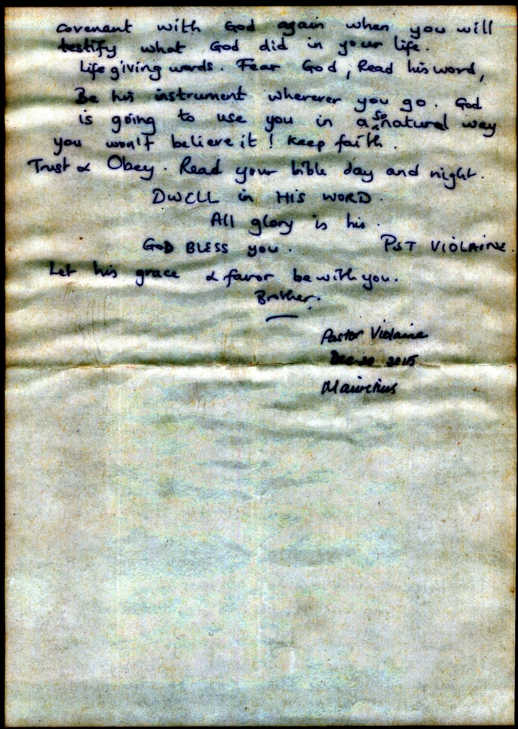 covenant with God again when you will
testify what God did in your life.
Life giving words. Fear God, Read his word,
Be his instrument wherever you go. God
is going to use you in a so natural way
you won't believe it! Keep faith.
Trust & Obey. Read your bible day and night.
DWELL in HIS WORD.
All glory is his.
GOD BLESS you. PST VIOLAINE.
Let his grace & favor be with you.
Brother.
Pastor Violaine
Dec 20 2015
Mauritius